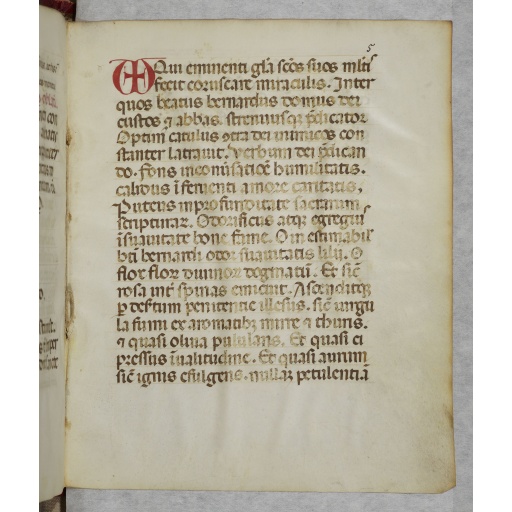 5
Qui eminenti gl̃a sc̃os suos ml̃ti
fecit coruscare miraculis. Inter
quos beatus bernardus domus dei
custos ⁊ abbas. strenuusq; p̃dicator
Optim' catulus ꝯtra dei inimicos con
stanter latrauit. Verbum dei p̃dican
do. fons
humilitatis.
calidus ĩ feruenti amore caritatis,
Puteus in profunditate sacrarum
scripturar̃. Odorificus atq; egregiu'
ĩ suauitate bone fame. O inestimabil'
bt̃i bernardi odor suauitatis lilij. O
flor flor̃ diuinor̃
Et sic̃
rosa int̃ spinas
Ascenditq;
p̱ deẜtum penitentie illesus. sic̃ uirgu
la fumi ex aromatib; mirre ⁊ thuris.
⁊ quasi oliua pululans. Et quasi ci
pressus ĩ altitudine. Et quasi aurum
sic̃ ignis efulgens. nullaq; petulentiã